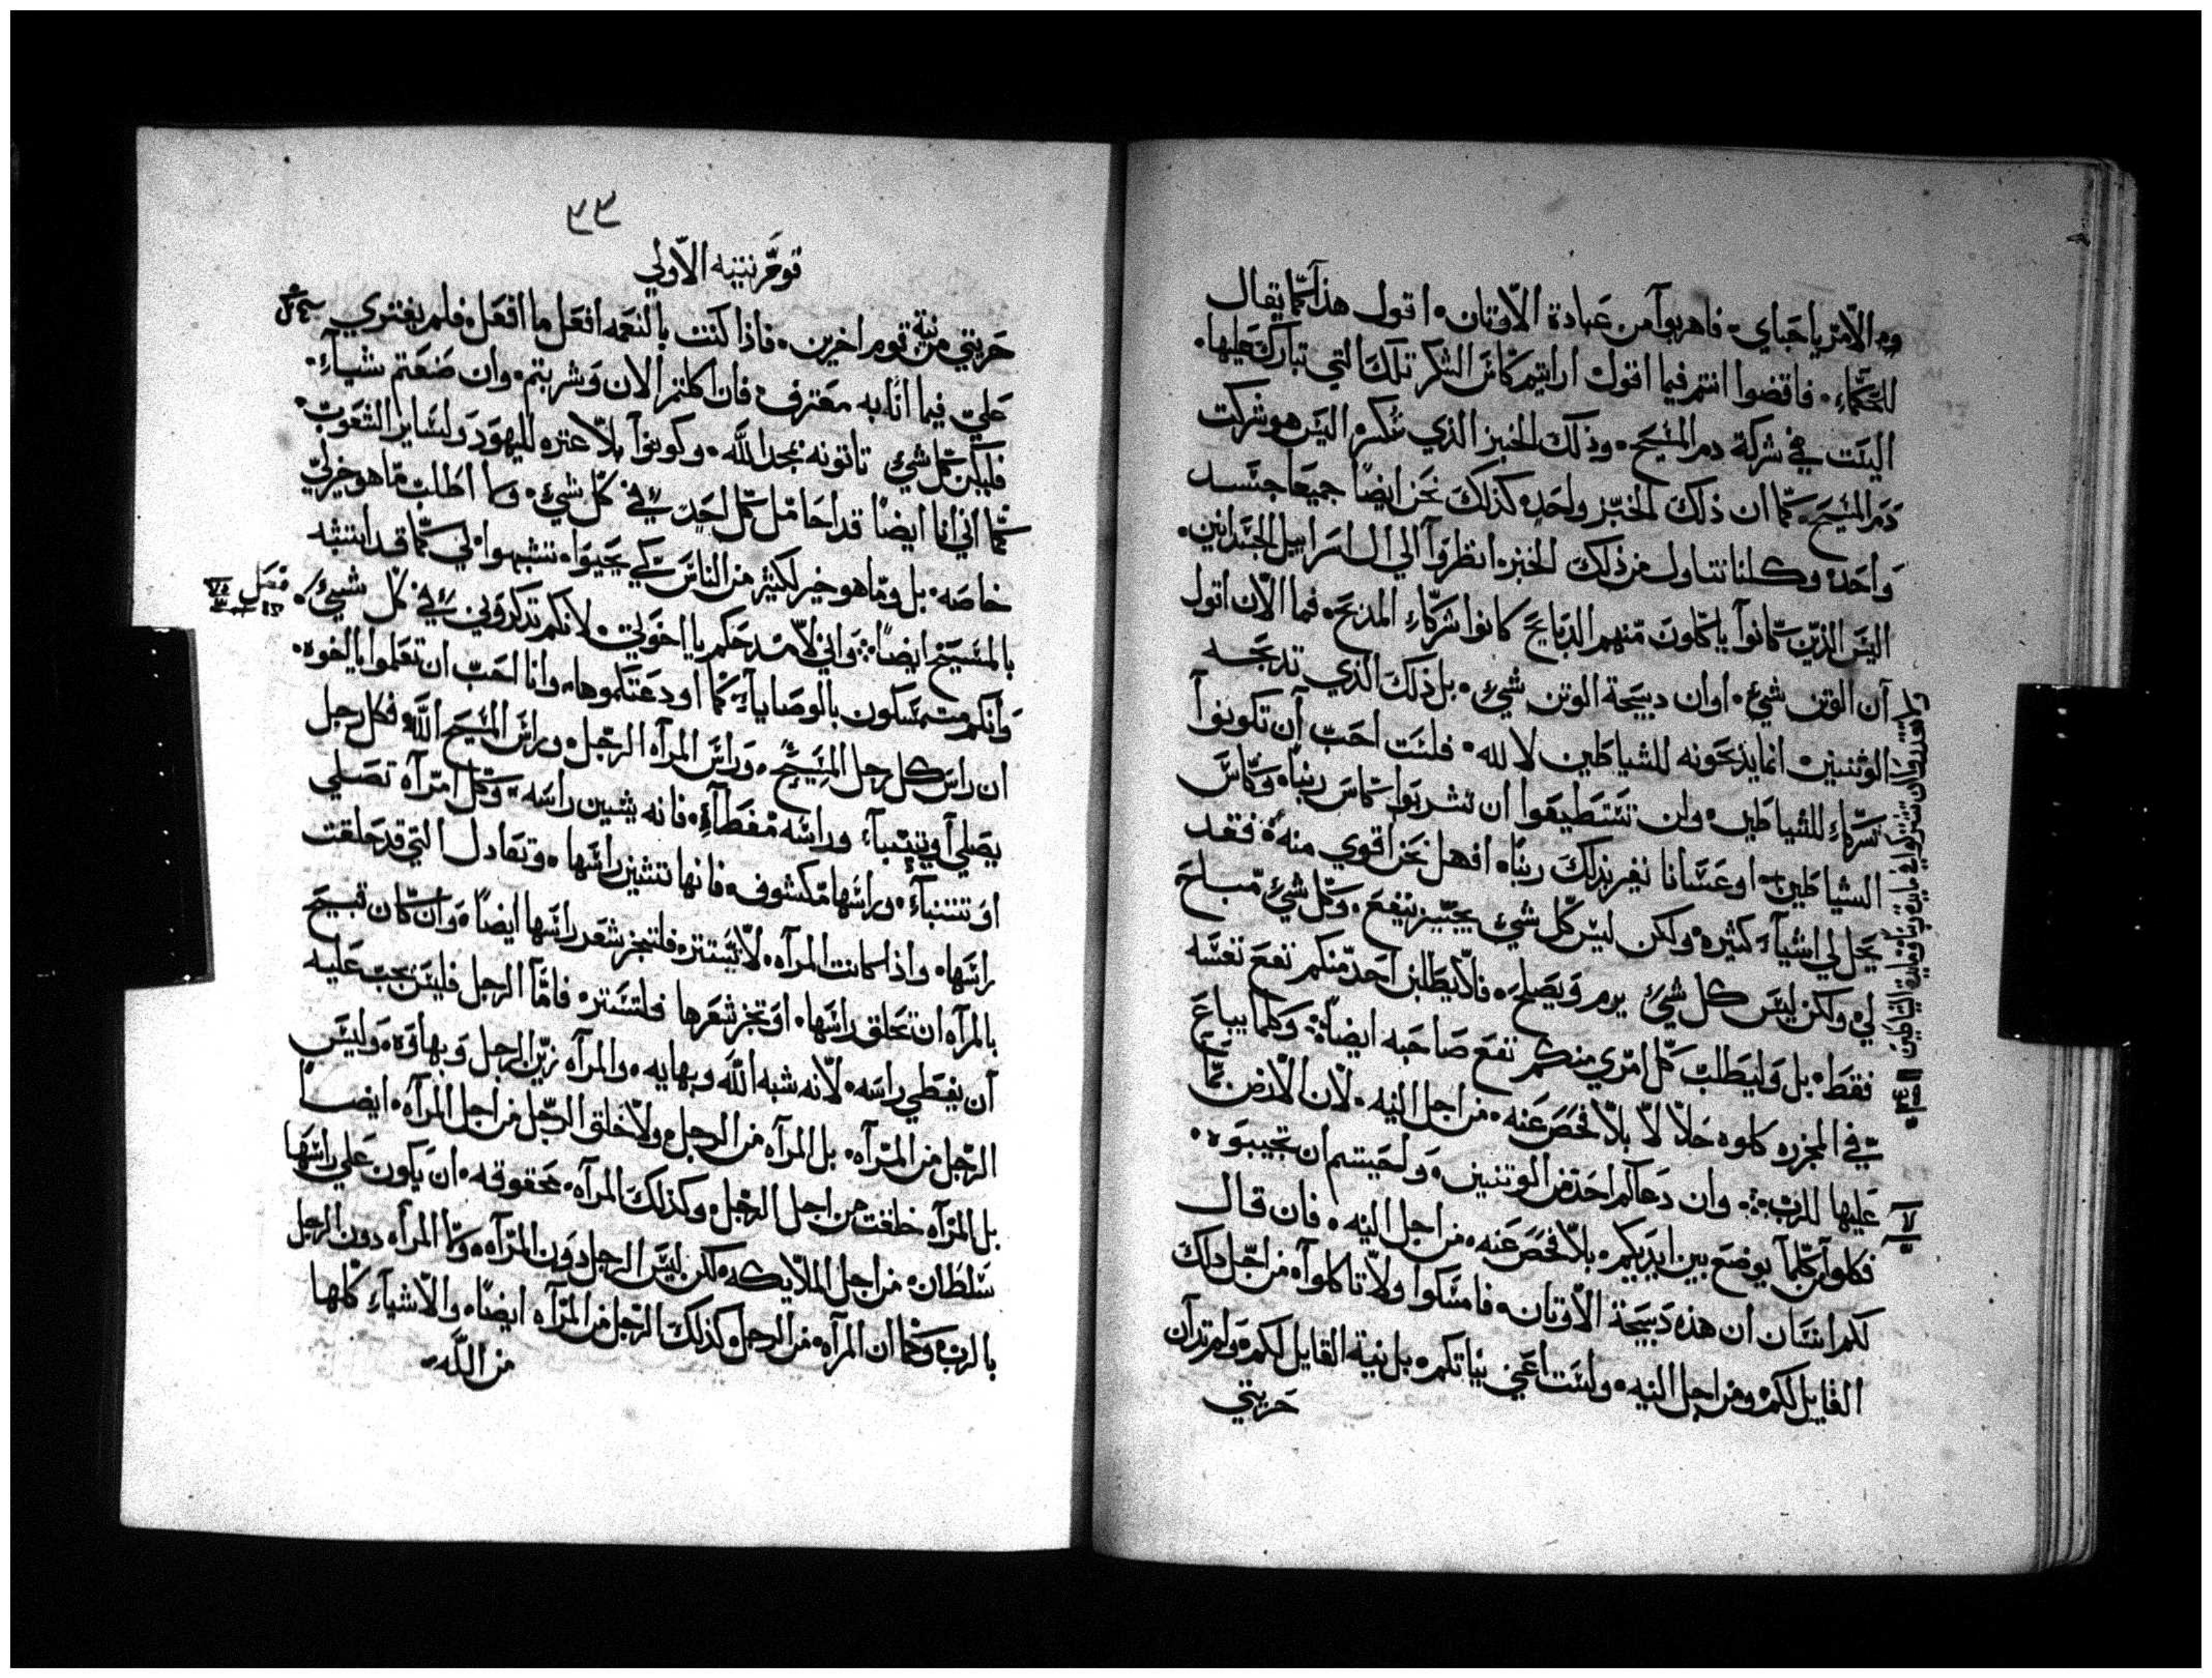 ومن الامر يا احباي فاهربوا من عبادة الاوتان اقول هذا كما يقال
للحكماء فاقضوا انتم فيما اقول ارايتم كاس الشكر تلك التي تبارك عليها
اليست هي شركة دم المسيح وذلك الخبز الذي نكسره اليس هو شركت
دم المسيح كما ان ذلك الخبز واحده كذلك نحن ايضا جميعا جسد
واحده وكلنا نتناول من ذلك الخبزه انظروا الي ال اسراييل الجسدانين
اليس الذين كانوا ياكلون منهم الدبايح كانوا شركاء المدبح فما الان اقول
ان الوتن شيء او ان دبيحة الوتن شيء بل ذلك الذي تدبحه
الوثنيين انما يذبحونه للشياطين لا لله فلست احب ان تكونوا
شركاء للشياطين ولن تستطيعوا ان تشربوا كاس ربنا وكاس
الشياطين او عسانا نغير بذلك ربنا افهل نحن اقوي منه فقد
يحل لي اشياء كثيره ولكن ليس كل شيء يجيز ينفع وكل شيء مباح
لي ولكن ليس كل شيء يرم ويصلح فلا يطلبن احد منكم نفع نفسه
فقط بل وليطلب كل امري منكم نفع صاحبه ايضا وكلما يباع
في المجزره كلوه حلالا بلا فحص عنه من اجل النيه لان الارض بما
عليها للرب وان دعاكم احد من الوتنيين واحببتم ان تجيبوه
فكلوا كلما يوضع بين ايديكم بلا فحص عنه من اجل النيه فان قال
لكم انسان ان هذه دبيحة الاوتان فامسكوا ولا تاكلوا من اجل دلك
القايل لكم ومن اجل النيه ولست اعني نياتكم بل نية القايل لكم ولم تدان
حريتي
ولا تقدروا ان تشتركوا في مايدة ربنا ومايدة الشياطين
٣٩
قورنتيه الاولي
حريتي من نية قوم اخرين فاذا كنت بالنعمه افعل ما افعل فلم يفتري
علي فيما انا به معترف فان اكلتم الان وشربتم وان صنعتم شياء
فليكن كل شي تاتونه بمجد الله وكونوا بلا عتره لليهود ولساير الشعوب
كما اني انا ايضا قد احامل كل احد في كل شيء ولا اطلب ما هو خير لي
خاصه بل وما هو خير لكثير من الناس كي يحيوا تشبهوا لي كما قد اتشبه
بالمسيح ايضا واني لامدحكم يا اخوتي لانكم تدكروني في كل شيء فصل
وانكم متمسكون بالوصايا كما اودعتكموها وانا احب ان تعلموا يا اخوه
ان راس كل رجل المسيح وراس المراه الرجل وراس المسيح الله فكل رجل
يصلي او يتنباء وراسه مغطاه فانه يشين راسه وكل امراه تصلي
او تتنباء وراسها مكشوف فانها تشين راسها وتعادل التي قد حلقت
راسها واذا كانت المراه لا تستتر فلتجز شعر راسها ايضا وان كان قبيح
بالمراه ان تحلق راسها او تجز شعرها فلتستتر فاما الرجل فليس يجب عليه
ان يغطي راسه لانه شبه الله وبهايه والمراه زين الرجل وبهاوه وليس
الرجل من المراه بل المراه من الرجل ولا خلق الرجل من اجل المراه ايضا
بل المراه خلقت من اجل الرجل وكذلك المراه محقوقه ان يكون علي راسها
سلطان من اجل الملايكه لكن ليس الرجل دون المراه ولا المراه دون الرجل
بالرب وكما ان المراه من الرجل كذلك الرجل من المراه ايضا والاشياء كلها
من الله